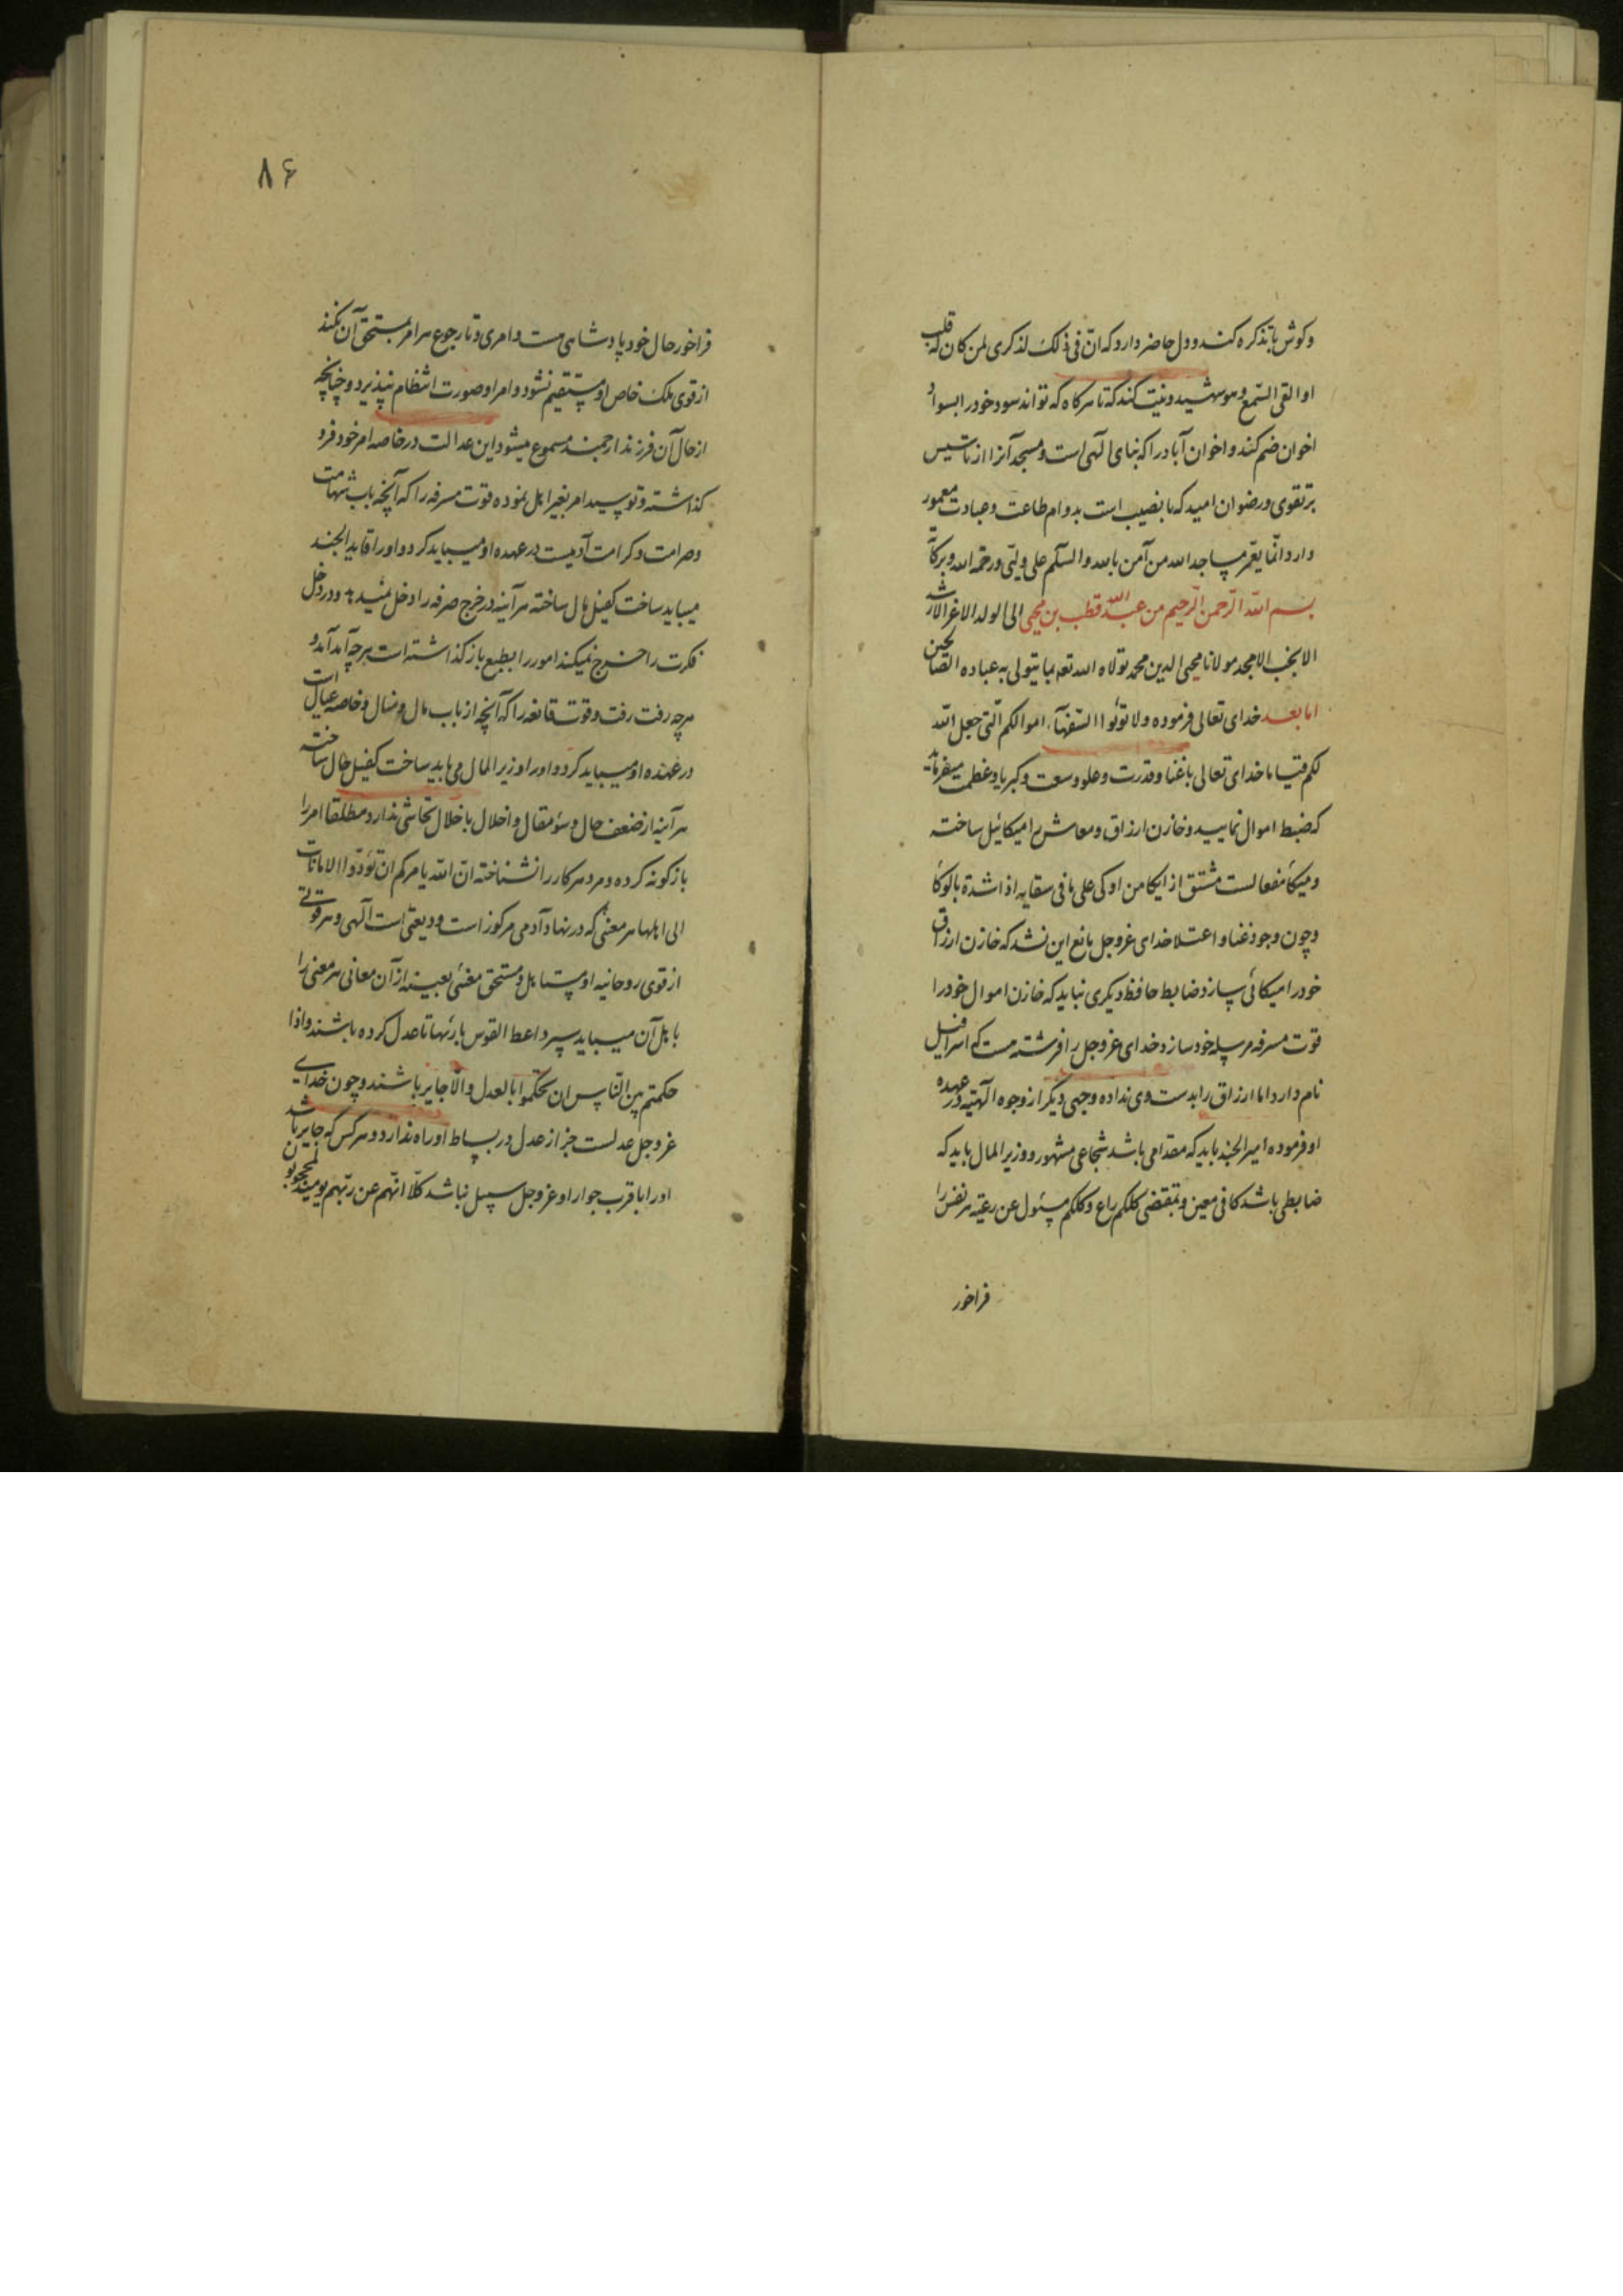 وکوش با تذکره کند و دل حاضر دارد که ان فی ذلک لذکری لمن کان له قلب
او القی السمع و هو شهید و نیت کند که تا هرکاه که تواند سود خود را بسواد
اخوان ضم کند و اخوان آباد را که بنای الهی است و مسجد آنرا از تاسیس
بر تقوی و رضوان امید که با نصیب است بدوام طاعت و عبادت معمور
دارد انما یعمر مساجد الله من آمن بالله والسلم علی ولیی ورحمة الله وبرکاته
بسم الله الرحمن الرحیم من عبدالله قطب بن محیی الی الولد الاغر الارشد
الانجب الامجد مولانا محیی الدین محمد تولاه الله تعه بما یتولی به عباده الصالحین
اما بعد خدای تعالی فرموده ولا تؤتوا السفهآء اموالکم التی جعل الله
لکم قیاما خدای تعالی با غنا و قدرت و علو و سعت و کبریا و عظمت میفرماید
که ضبط اموال نمایید و خازن ارزاق و معاش را میکائیل ساخته
و میکا مفعالست مشتق از ایکا من اوکی علی ما فی سقایه اذا شده بالوکا
و چون وجود غنا و اعتلا خدای عز و جل مانع این نشد که خازن ارزاق
خود را میکائی سازد ضابط حافظ دیکری نباید که خازن اموال خود را
قوت مسرفه مرسله خود سازد خدای عز و جل را فرشته هست که اسرافیل
نام دارد اما ارزاق را بدست وی نداده وجهی دیکر از وجوه الهیه در عهده
او فرموده امیر الجند باید که مقدامی باشد شجاعی مشهور و وزیر المال باید که
ضابطی باشد کافی معین و بمقتضی کلکم راع و کلکم مسئول عن رعیته هر نفس را
فراخور
۸۶
فراخور حال خود پادشاهی هست و امری و تا رجوع هر امر بمستحق آن نکند
از قوی ملک خاص او مستقیم نشود و امر او صورت انتظام نپذیرد و چنانچه
از حال آن فرزند ارجمند مسموع میشود این عدالت در خاصه امر خود فرو
کذاشته و توسید امر بغیر اهل نموده قوت مسرفه را که آنچه باب شهامت
و صرامت و کرامت آدمیست در عهده او میباید کرد و او را قاید الجند
میباید ساخت کفیل مال ساخته هرآینه در خرج صرفه را دخل نمیدهد و در دخل
فکرت را خرج نمیکند امور را بطبع باز کذاشته است هرچه آمد آمد و
هرچه رفت رفت و قوت قانعه را که آنچه از باب مال و منال و خاصه عیال است
در عهده او میباید کرد و او را وزیر المال می باید ساخت کفیل حال ساخته
هرآینه از ضعف حال و سؤ مقال و اخلال باخلال تحاشی ندارد مطلقا امر را
بازکونه کرده و مرد هر کار را نشناخته ان الله یامرکم ان تؤدوا الامانات
الی اهلها هر معنی که در نهاد آدمی مرکوز است ودیعتی است الهی و هر قوتی
از قوی روحانیه او مستاهل و مستحق معنئی بعینه از آن معانی هر معنی را
باهل آن میباید سپرد اعط القوس باریها تا عدل کرده باشند و اذا
حکمتم بین الناس ان تحکموا بالعدل والا جایر باشند و چون خدای
عز و جل عدلست جز از عدل در بساط او راه ندارد و هرکس که جایر باشد
او را با قرب جوار او عز و جل سبیل نباشد کلا انهم عن ربهم یومئذ لمحجوبون